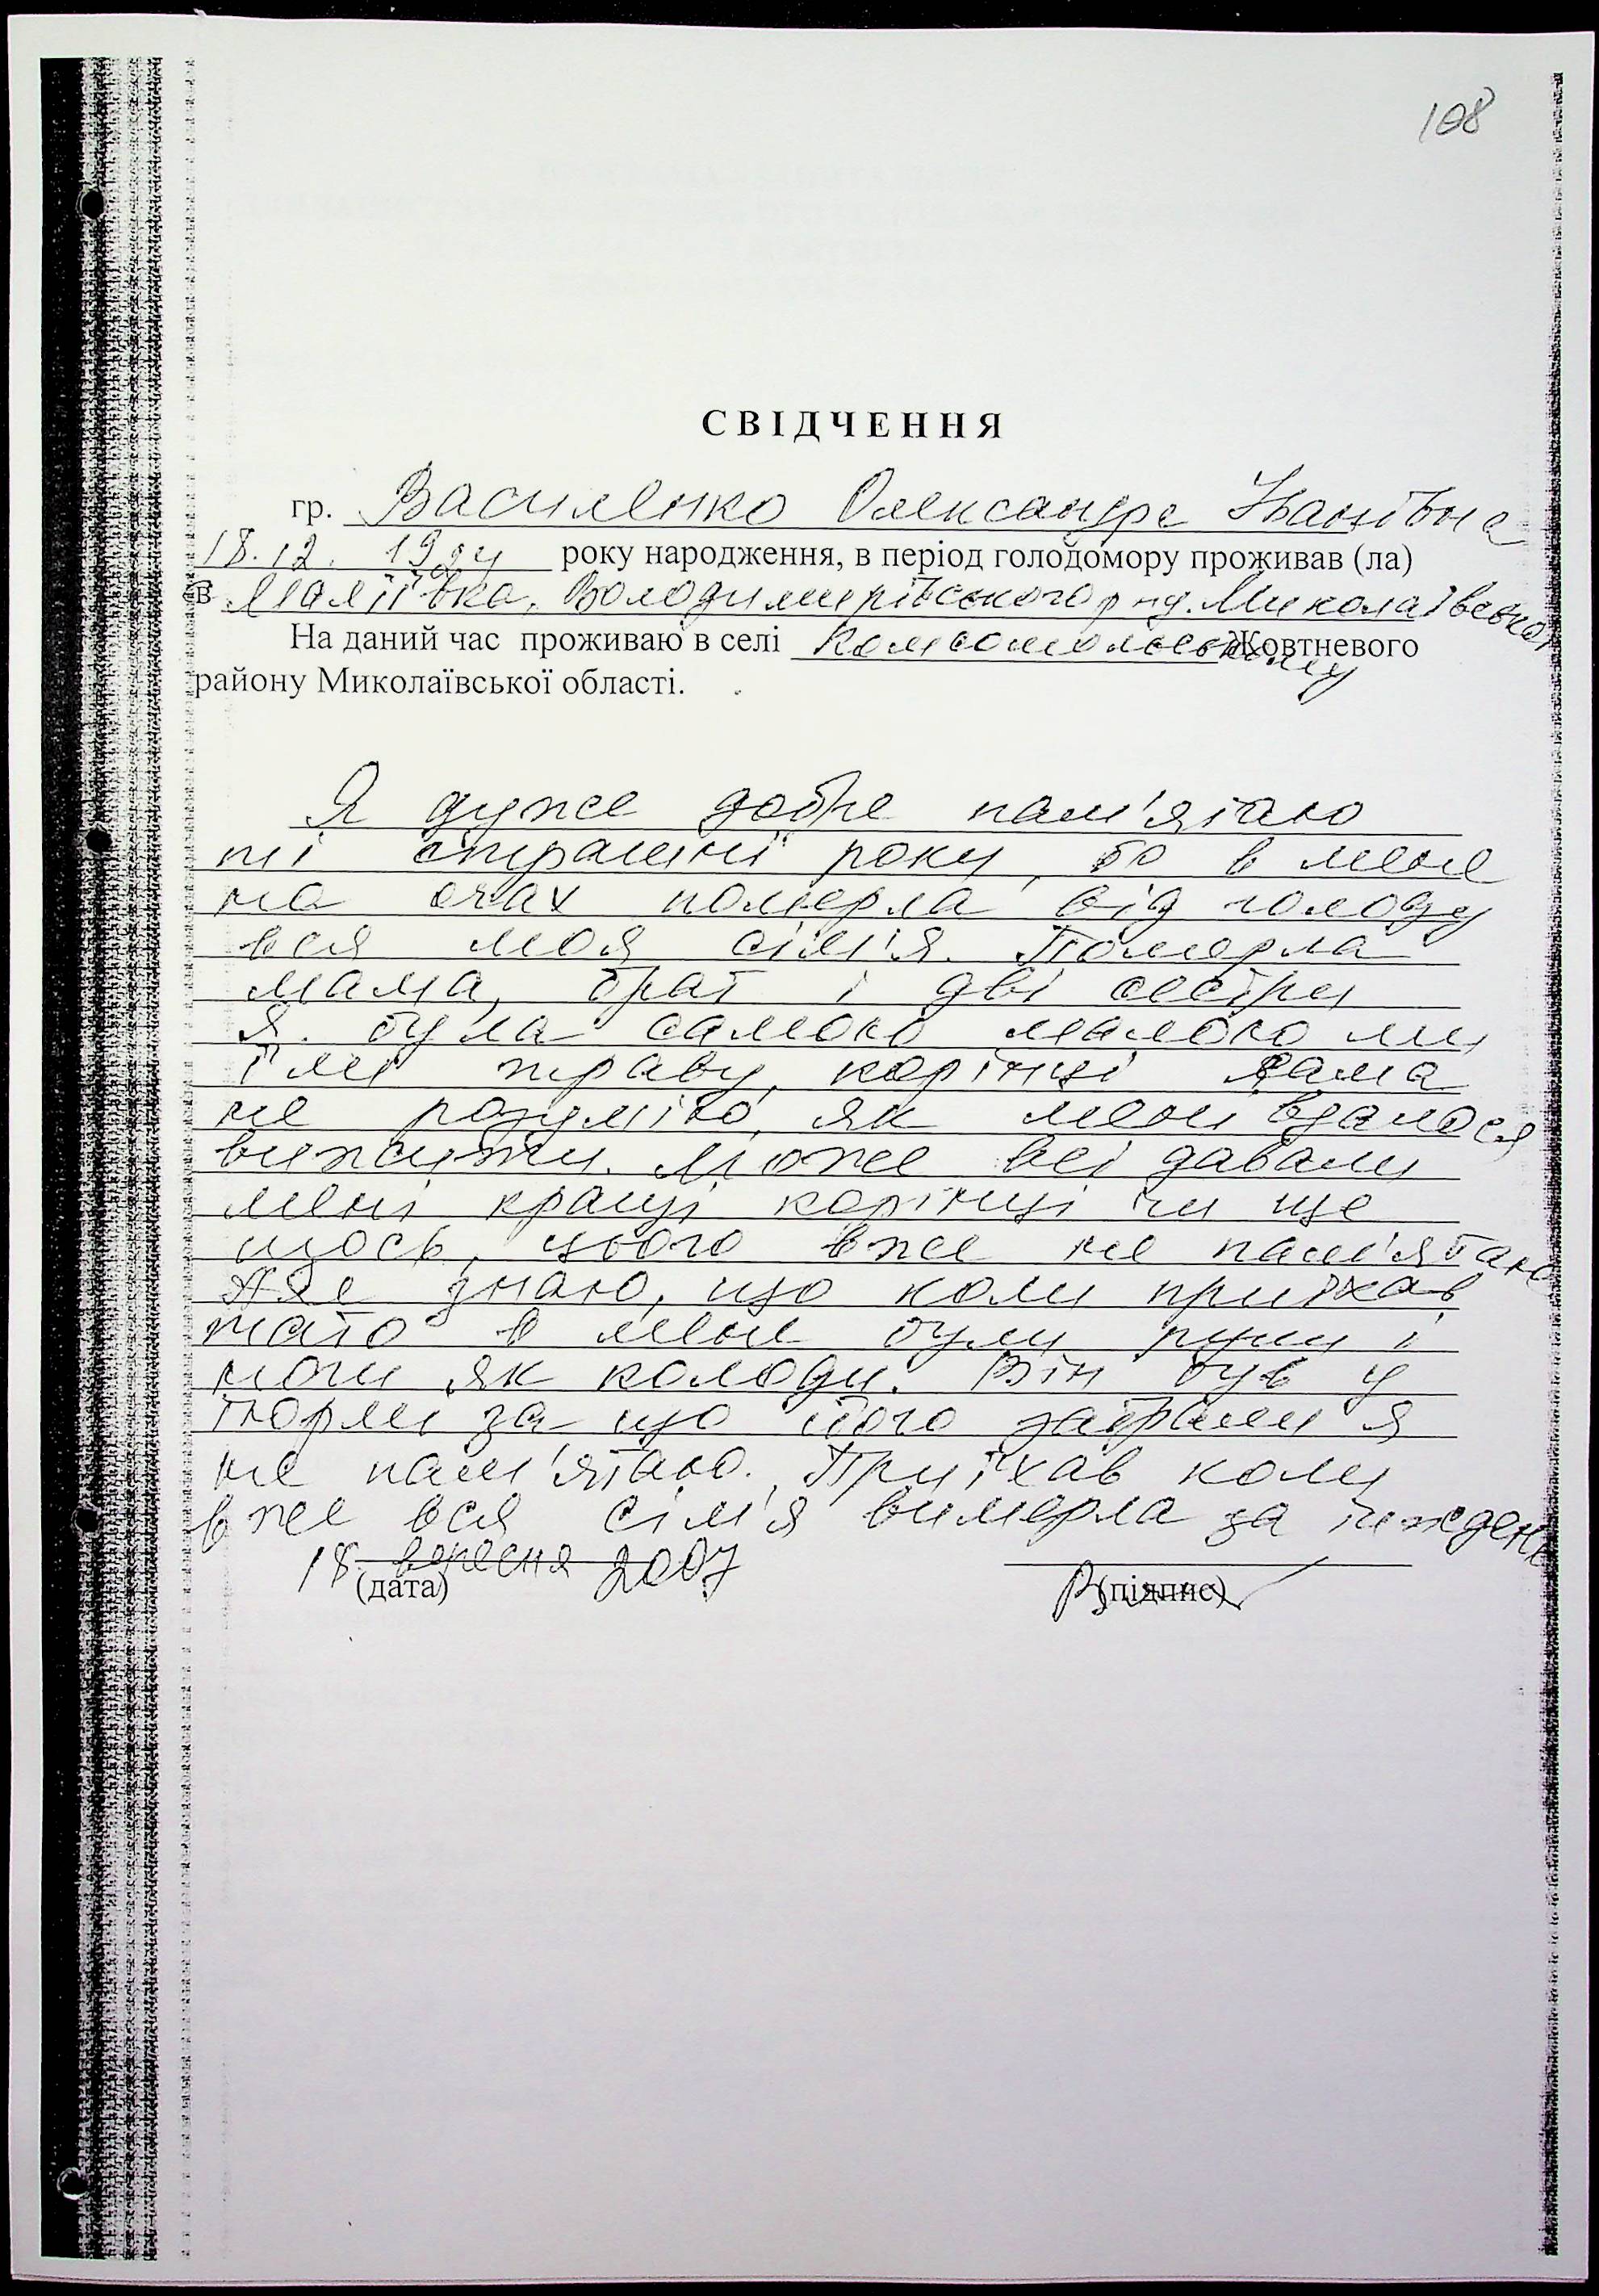 108
СВІДЧЕННЯ
гр. Василенко Олександра Іванівна
18.12. 1924 року народження, в період голодомору проживав (ла)
в Маліївка, Володимерівського р-ну. Миколаївської
На даний час проживаю в селі Комсомольському Жовтневого
району Миколаївської області.
Я дуже добре пам'ятаю
ті страшні роки, бо в мене
на очах померла від голоду
вся моя сім'я. Померла
мама, брат і дві сестри
Я була самою малою ми
їли траву, корінці Сама
не розумію, як мені вдалося
вижити. Може всі давали
мені кращі корінці чи ще
щось, цього вже не пам'ятаю
Але знаю, що коли приїхав
тато в мене були руки і
ноги як колоди. Він був у
тюрмі за що його забрали я
не пам'ятаю. Приїхав коли
вже вся сім'я вимерла за тиждень
18 вересня 2007
(дата) (підпис)